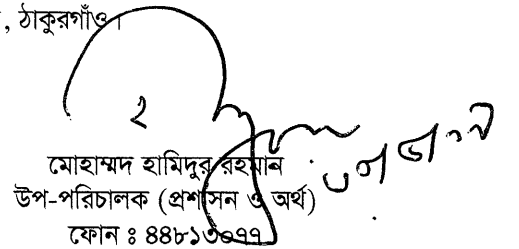 , ঠাকুরগাঁও।
মোহাম্মদ হামিদুর রহমান
উপ-পরিচালক (প্রশাসন ও অর্থ)
ফোন ঃ ৪৪৮১৩০৭৭